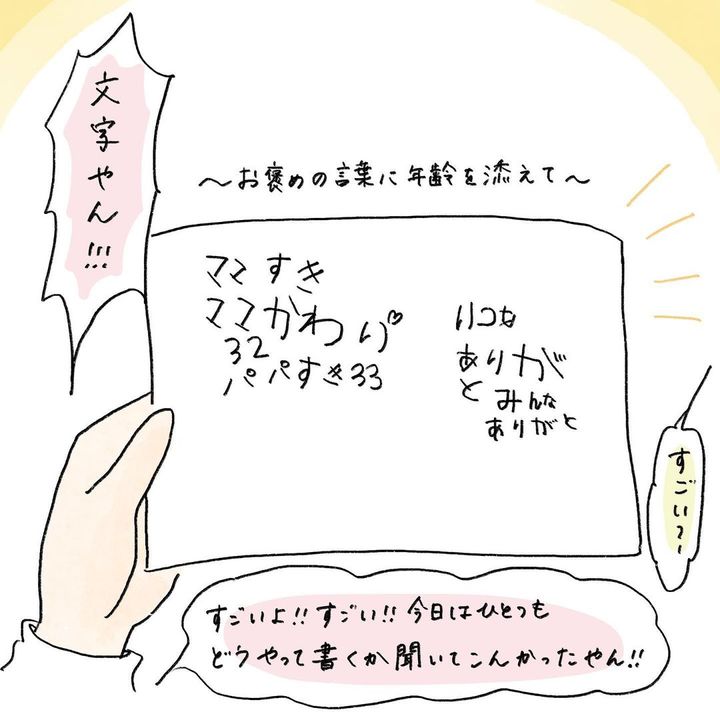 文字やん!!!
〜お褒めの言葉に年齢を添えて〜
ママすき
ママがわり♡
32
パパすき33
リコな
ありが
とみんな
ありがと
すごい?
すごいよ!!すごい!!今日はひとつも
どうやって書くか聞いてこんかったやん!!